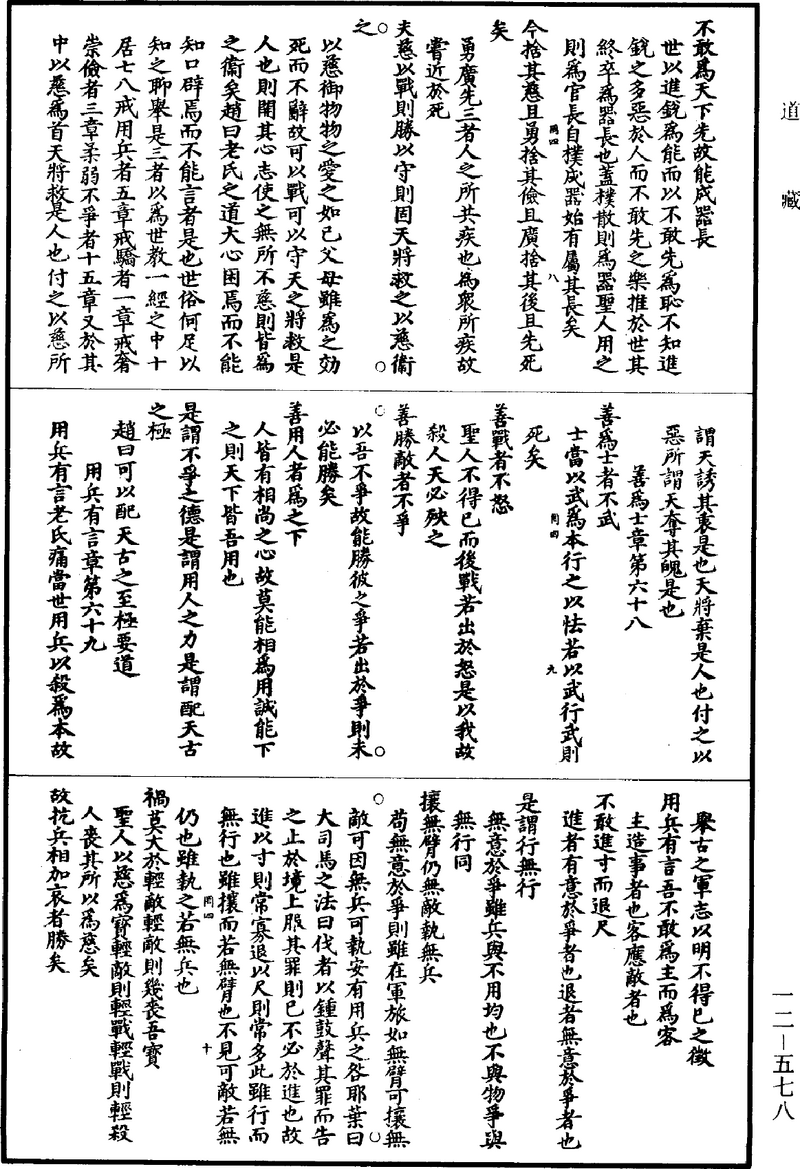 道藏
不敢為天下先故能成器長
世以進銳為能而以不敢先為恥不知進
銳之多惡於人而不敢先之樂推於世其
終卒為器長也蓋樸散則為器聖人用之
則為官長自樸成器始有屬其長矣
今捨其慈且勇捨其儉且廣捨其後且先死
矣
勇廣先三者人之所共疾也為衆所疾故
常近於死
夫慈以戰則勝以守則固天將救之以慈衛
之
以慈御物物之愛之如己父母雖為之効
死而不辭故可以戰可以守天之將救是
人也則開其心志使之無所不慈則皆為
之衛矣趙曰老氏之道大心困焉而不能
知口辟焉而不能言者是也世俗何足以
知之聊舉是三者以為世教一經之中十
居七八戒用兵者五章戒驕者一章戒奢
崇儉者三章柔弱不爭者十五章又於其
中以慈為首天將救是人也付之以慈所
謂天誘其衷是也天將棄是人也付之以
惡所謂天奪其魄是也
善為士章第六十八
善為士者不武
士當以武為本行之以怯若以武行武則
死矣
善戰者不怒
聖人不得已而後戰若出於怒是以我故
殺人天必殃之
善勝敵者不爭
以吾不爭故能勝彼之爭若出於爭則未
必能勝矣
善用人者為之下
人皆有相尚之心故莫能相為用誠能下
之則天下皆吾用也
是謂不爭之德是謂用人之力是謂配天古
之極
趙曰可以配天古之至極要道
用兵有言章第六十九
用兵有言老氏痛當世用兵以殺為本故
舉古之軍志以明不得已之徵
用兵有言吾不敢為主而為客
主造事者也客應敵者也
不敢進寸而退尺
進者有意於爭者也退者無意於爭者也
是謂行無行
無意於爭雖兵與不用均也不與物爭與
無行同
攘無臂仍無敵執無兵
苟無意於爭則雖在軍旅如無臂可攘無
敵可因無兵可執安有用兵之咎耶葉曰
大司馬之法曰伐者以鍾鼓聲其罪而告
之止於境上服其罪則已不必於進也故
進以寸則常寡退以尺則常多此雖行而
無行也雖攘而若無臂也不見可敵若無
仍也雖執之若無兵也
禍莫大於輕敵輕敵則幾喪吾寶
聖人以慈為寶輕敵則輕戰輕戰則輕殺
人喪其所以為慈矣
故抗兵相加哀者勝矣
同四
八
同四
九
同四
十
一二-五七八